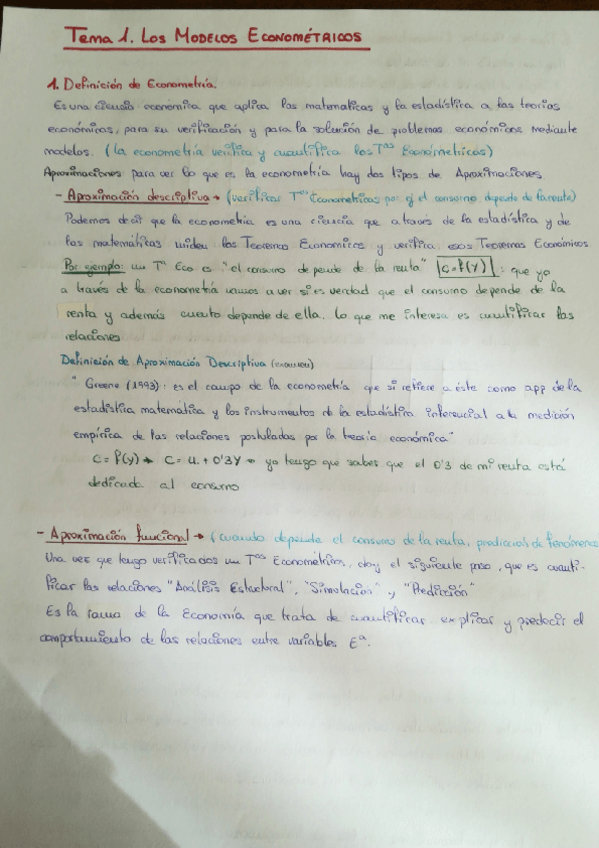 Tema 1. Los Modelos Econométricos
1. Definición de Econometría.
Es una ciencia económica que aplica las matematicas y la estadística a las teorias
económicas, para su verificación y para la solución de problemas económicos mediante
modelos. (la econometría verifica y cuantifica los Tas Económetricas)
Aproximaciones para ver lo que es la econometría hay dos tipos de Aproximaciones.
- Aproximación descriptiva → (verificar Tas Econometricas por ej el consumo depende de la renta)
Podemos decir que la econometria es una ciencia que a través de la estadística y de
las matemáticas miden los Teoremas Economicos y verifica esos Teoremas Económicos
Por ejemplo: un Ta Eco es "el consumo depende de la renta" C=f(Y) : que yo
a través de la econometría vamos a ver si es verdad que el consumo depende de la
renta y además cuanto depende de ella. Lo que me interesa es cuantificar las
relaciones
Definición de Aproximación Descriptiva (examen)
" Greene (1993): es el campo de la econometría que si refiere a éste como app de la
estadística matemática y los instrumentos de la estadística inferencial a la medición
empírica de las relaciones postuladas por la teoría económica"
C = f(y) → C = u + 0'3Y → yo tengo que saber que el 0'3 de mi renta está
dedicada al consumo
- Aproximación funcional → (cuando depende el consumo de la renta, prediccion de fenómenos
Una vez que tengo verificados un Tas Econometricos, doy el siguiente paso, que es cuanti-
ficar las relaciones "Análisis Estructoral", "Simulación" y "Predicción"
Es la rama de la Economía que trata de cuantificar explicar y predecir el
comportamiento de las relaciones entre variables Ea.